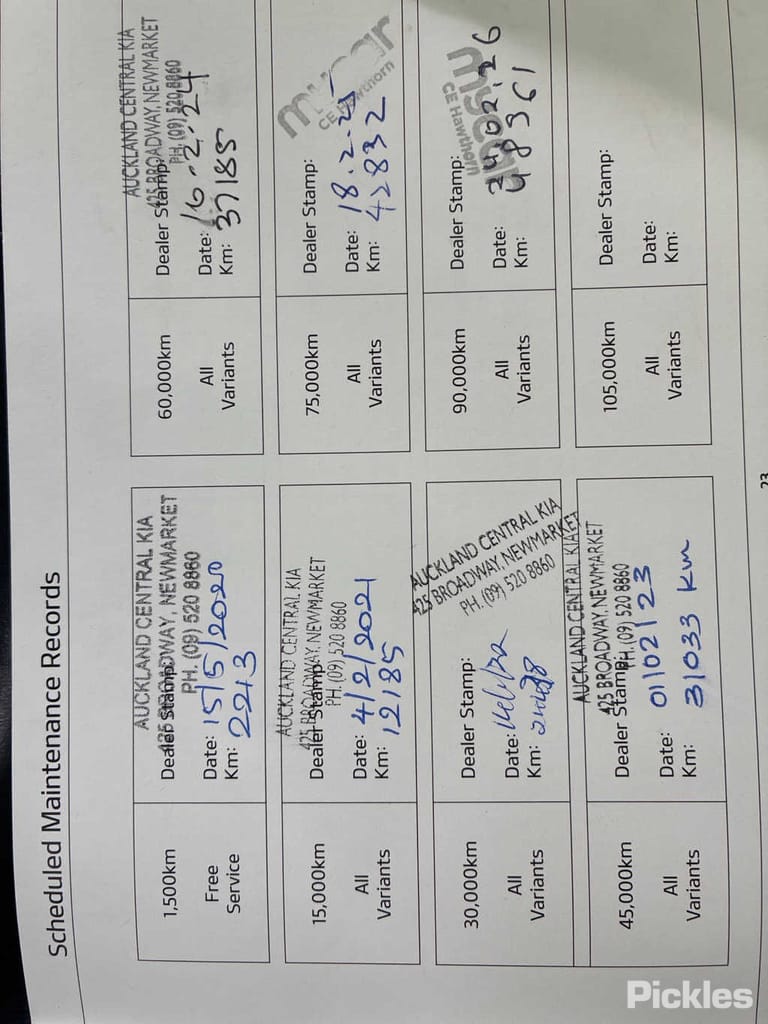 Scheduled Maintenance Records
1,500km
Free
Service
AUCKLAND CENTRAL KIA
425 BROADWAY, NEWMARKET
PH. (09) 520 8860
Dealer Stamp:
Date: 15/5/2020
Km: 2213
15,000km
All
Variants
AUCKLAND CENTRAL KIA
425 BROADWAY, NEWMARKET
PH. (09) 520 8860
Dealer Stamp:
Date: 4/2/2021
Km: 12185
30,000km
All
Variants
AUCKLAND CENTRAL KIA
425 BROADWAY, NEWMARKET
PH. (09) 520 8860
Dealer Stamp:
Date:
Km:
45,000km
All
Variants
AUCKLAND CENTRAL KIA
425 BROADWAY, NEWMARKET
PH. (09) 520 8860
Dealer Stamp:
Date: 01/02/23
Km: 31033 km
60,000km
All
Variants
AUCKLAND CENTRAL KIA
425 BROADWAY, NEWMARKET
PH. (09) 520 8860
Dealer Stamp:
Date: 16.2.24
Km: 37185
75,000km
All
Variants
mycar
CE Hawthorn
Dealer Stamp:
Date: 18.2.25
Km: 42832
90,000km
All
Variants
mycar
CE Hawthorn
Dealer Stamp:
Date: 24.02.26
Km: 48361
105,000km
All
Variants
Dealer Stamp:
Date:
Km:
23
Pickles